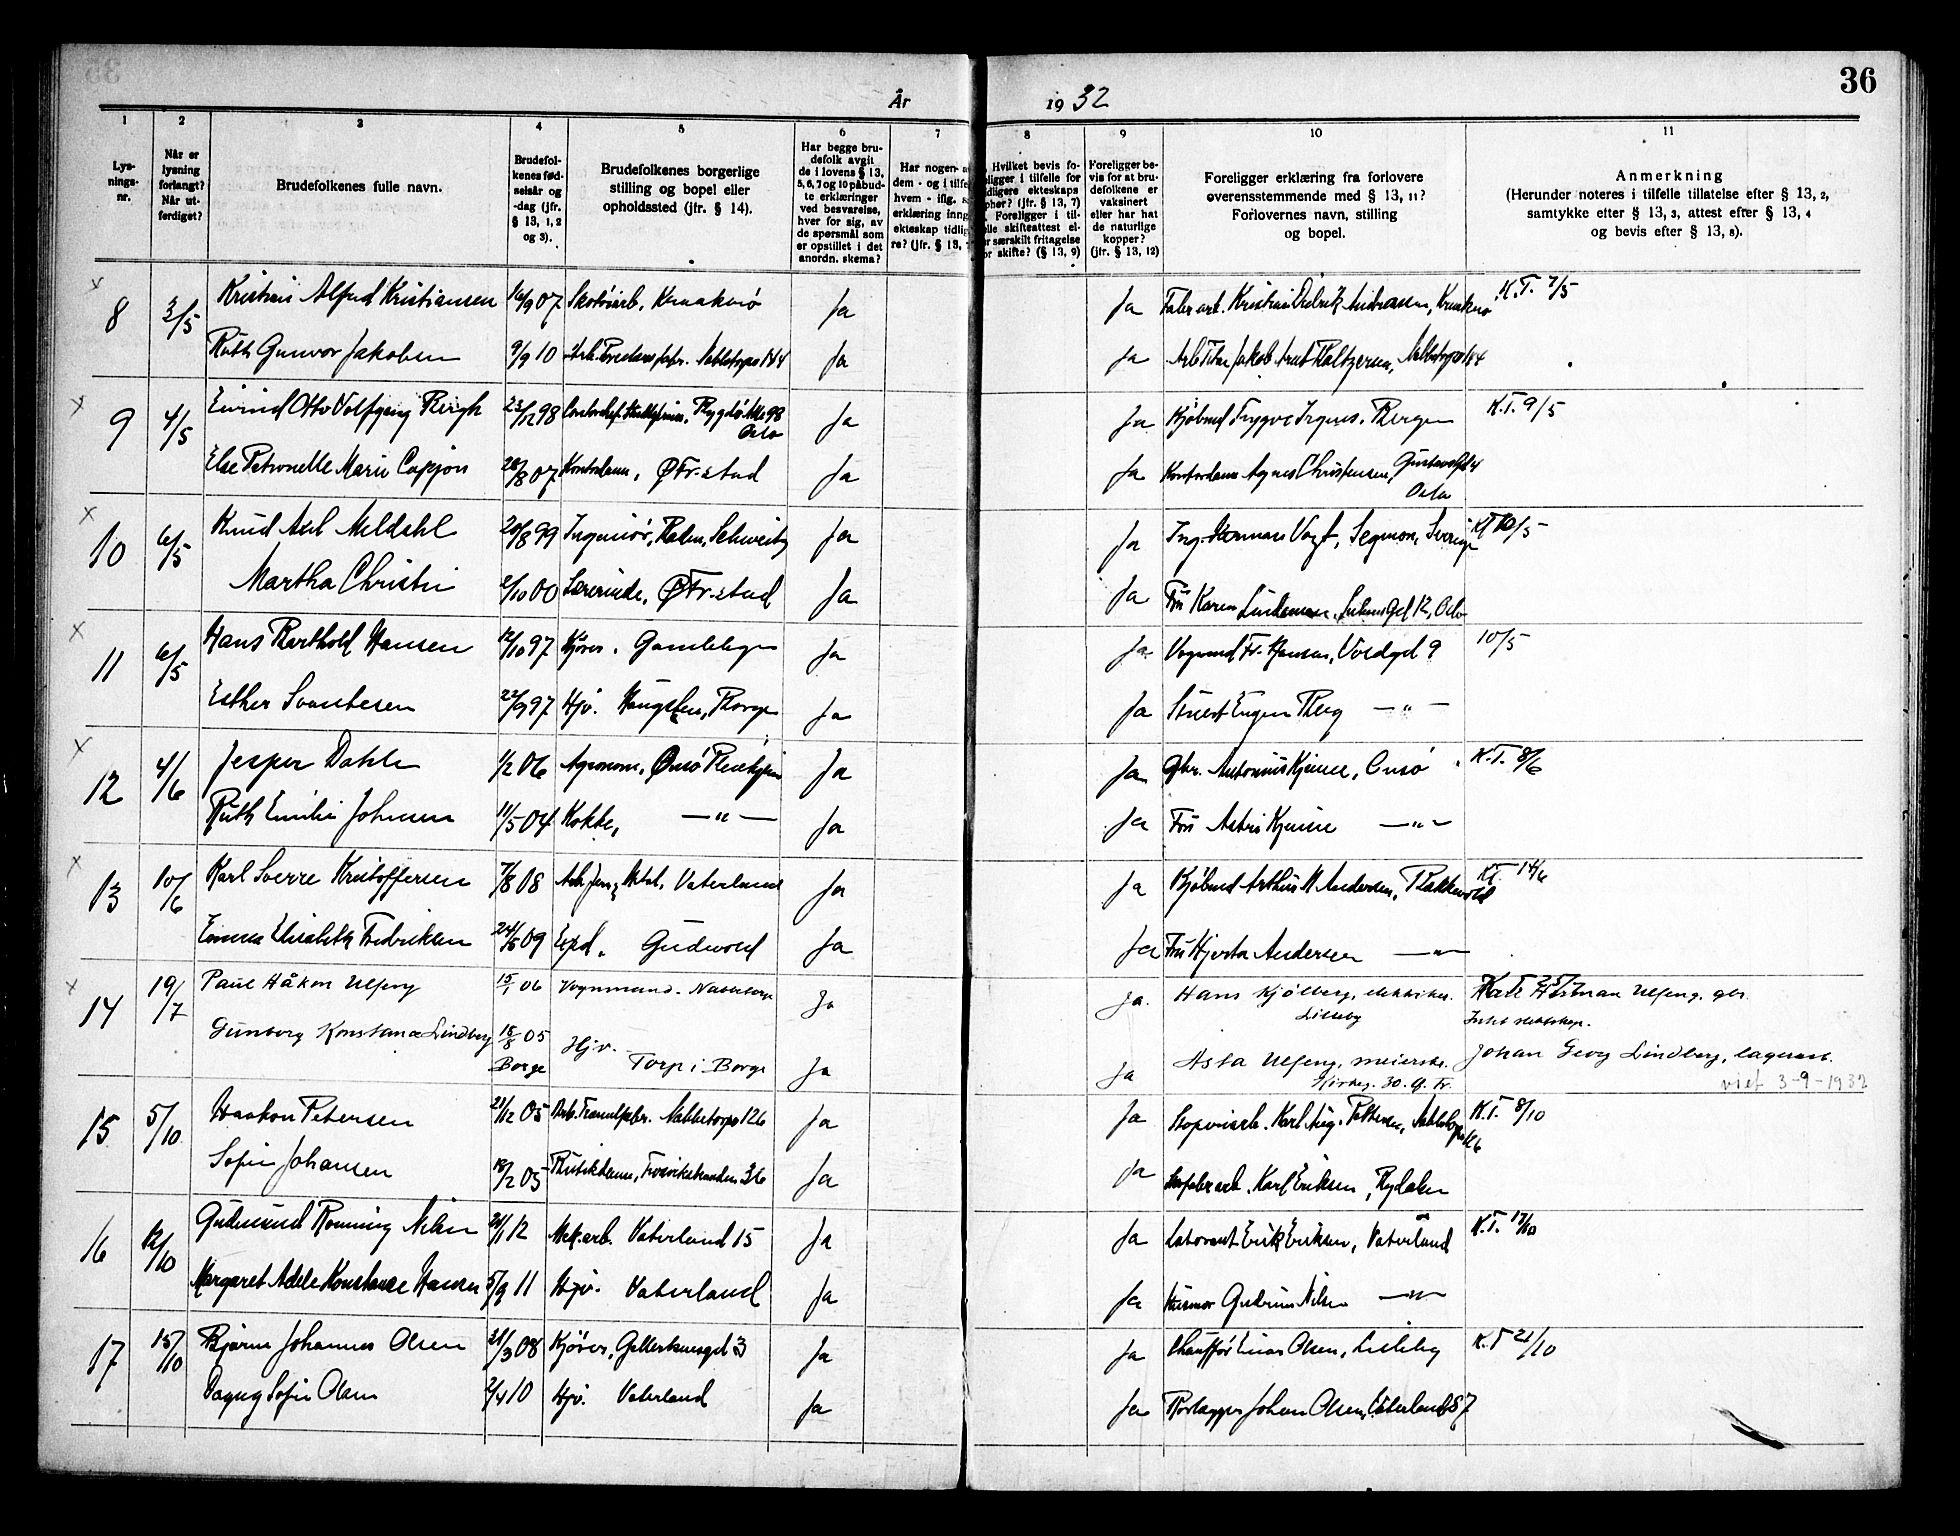 36
År 1932
1 2 3 4 5 6 7 8 9 10 11
Lys-
nings-
nr.
Når er
lysning
forlangt?
Når ut-
ferdiget?
Brudefolkenes fulle navn.
Brudefol-
kenes fød-
selsår og
-dag (jfr.
§ 13, 1, 2
og 3).
Brudefolkenes borgerlige
stilling og bopel eller
opholdssted (jfr. § 14).
Har begge bru-
defolk avgit
de i lovens § 13,
5, 6, 7 og 10 påbud-
te erklæringer
ved besvarelse,
hver for sig, av
de spørsmål som
er opstillet i det
anordn. skema?
Har nogen a
dem - og i tilfe
hvem - iflg. s
erklæring inng
ekteskap tidlig
re? (jfr. § 13,
Hvilket bevis fo-
religger i tilfelle for
dligere ekteskaps
phør? (jfr. § 13, 7)
Foreligger i til-
elle skifteattest el-
r særskilt fritagelse
or skifte? (§ 13, 9)
Foreligger be-
vis for at bru-
defolkene er
vaksinert
eller har hat
de naturlige
kopper?
(jfr. § 13, 12)
Foreligger erklæring fra forlovere
overensstemmende med § 13, 11?
Forlovernes navn, stilling
og bopel.
Anmerkning
(Herunder noteres i tilfelle tillatelse efter § 13, 2,
samtykke efter § 13, 3, attest efter § 13, 4
og bevis efter § 13, 8).
x 8 3/5 Kristian Alfred Kristiansen 16/9 07 Ja Ja K.T. 7/5
Ruth Gunvor Jakobsen 9/9 10 Ja Ja
x 9 4/5 Eivind Otto Volfgang Bergh 23/12 98 Oslo Ja Ja Kjøbmd Trygve Bergen K.T. 9/5
Else Petronelle Marie Capjon 28/8 07 Kontordame, Ø Fr.stad Ja Ja Kontordame Agnes Christensen, Oslo
x 10 6/5 Knud Axel Meldahl 20/8 99 Ingeniør, Ja Ja Ing. Vogt, K.T. 10/5
Martha Christie 2/10 00 Lærerinde, Ø Fr.stad Ja Ja Fru Karen Lindeman, 12, Oslo
x 11 6/5 Hans Berthold Hansen 12/10 97 Kjører. Gamlebyen Ja Ja Vognmd Fr. Hansen, Voldgd 9 10/5
Esther Svantesen 22/9 97 Hjv. Haugsten, Borge Ja Ja Eugen Berg — " —
x 12 4/6 Jesper Dahle 1/2 06 Agronom, Onsø Ja Ja Gbr. Antonius Kjenne, Onsø K.T. 8/6
Ruth Emilie Johnsen 11/5 04 Kokke, — " — Ja Ja Fru Astri Kjenne — " —
x 13 10/6 Karl Sverre Kristoffersen 7/8 08 Vaterland Ja Ja Kjøbmd Arthur M Andersen, K.T. 14/6
Emma Elisabeth Fredriksen 24/5 09 Exp. Gudevold Ja Ja Fru Hjørdis Andersen — " —
x 14 19/7 Paul Håkon Ulfeng 15/1 06 Vognmand. Ja Ja. Hans Kjølberg, elektriker. Lilleby
Gunborg Konstance Lindberg 18/8 05 Borge Hjv. Torp i Borge Ja Ja Asta Ulfeng, meierske. Kirkeg. 30. G. Fr.
Karl Hartman Ulfeng, gbr.
Intet slektskap.
Johan Georg Lindberg, lagerarb.
viet 3-9-1932
15 5/10 Haakon Petersen 21/12 05 Nabbetorp 126 Ja Ja Karl Aug. Pettersen, K.T. 8/10
Sofie Johansen 18/2 05 Butikdame, Trosvikstranden 36 Ja Ja Karl Eriksen, Rydalen
16 12/10 Gudmund Rønning Nilsen 21/1 12 Mek.arb. Vaterland 15 Ja Ja Erik Eriksen, Vaterland K.T. 17/10
Margaret Adele Konstanse Hansen 5/9 11 Hjv. Vaterland Ja Ja Husmor Gudrun Nilsen — " —
17 15/10 Bjarne Johannes Olsen 21/3 08 Kjører, 3 Ja Ja Chauffør Einar Olsen, Lilleby K.T. 21/10
Dagny Sofie Olsen 2/4 10 Hjv. Vaterland Ja Ja Rørlægger Johan Olsen, Vaterland 87